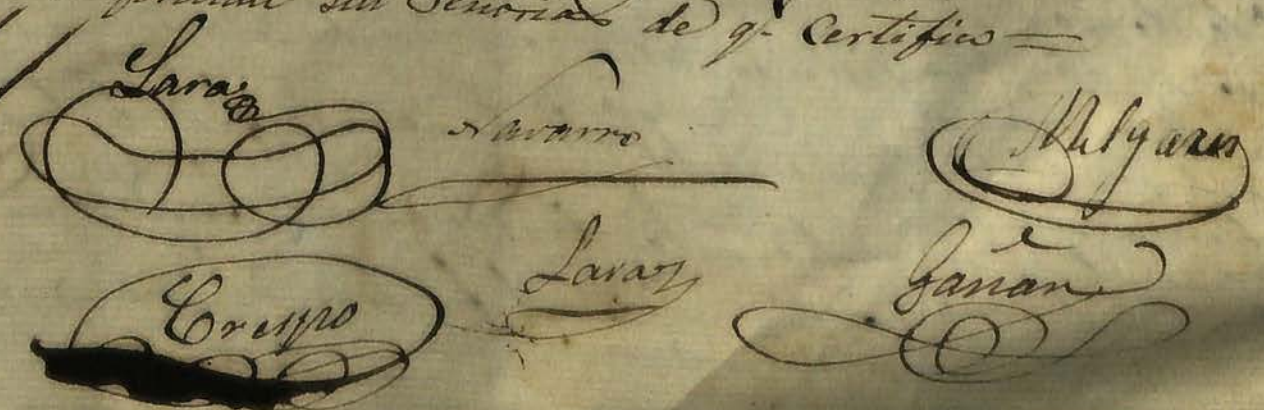 sus Señorias de q.e Certifico =
Lara Navarro Melgares
Crespo Lara Gañan